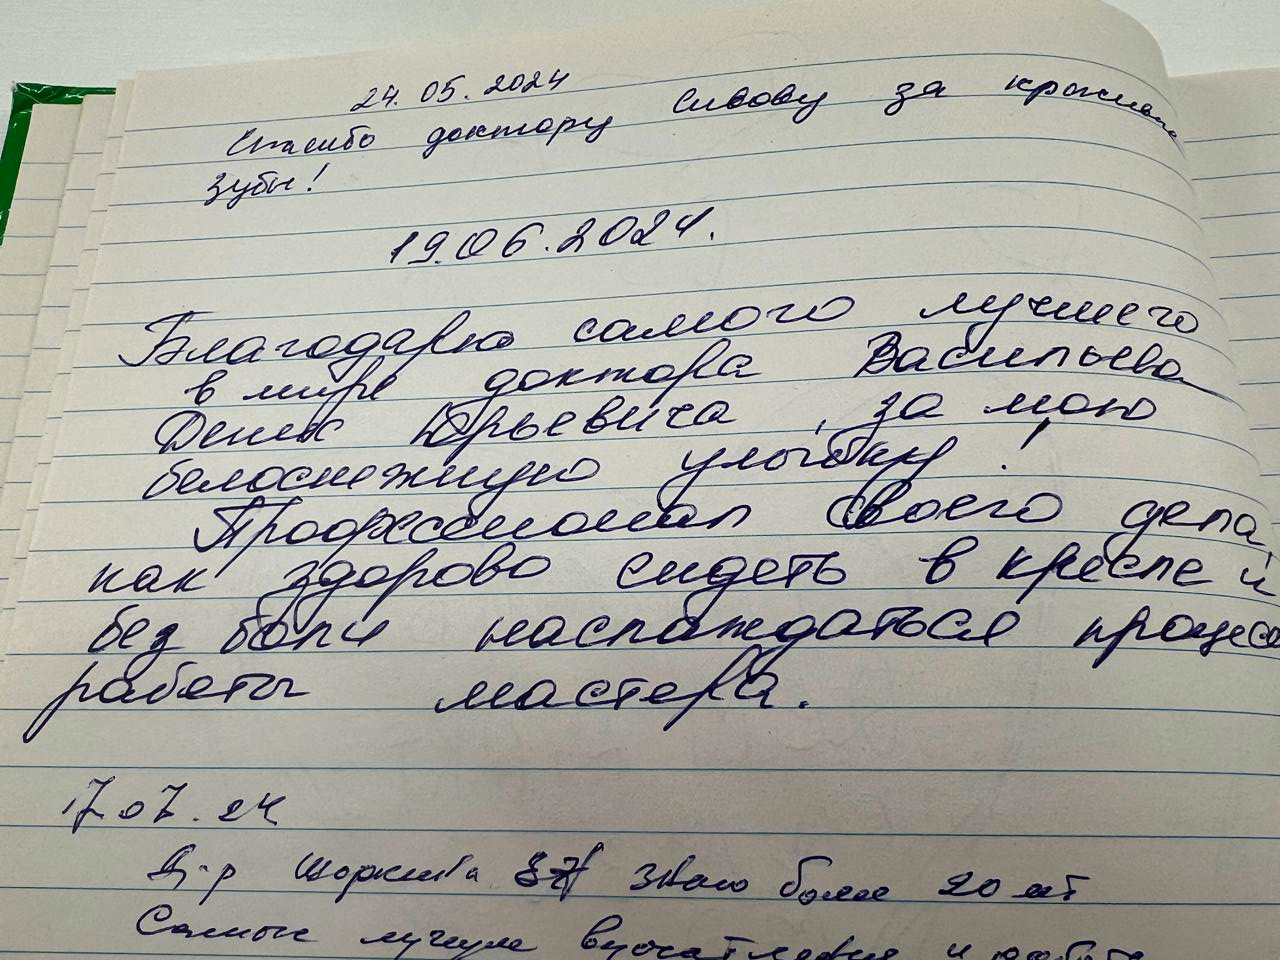 24.05.2024
Спасибо доктору Сивову за красивые
зубы!
19.06.2024.
Благодарю самого лучшего
в мире доктора Васильева
Дениса Юрьевича, за мою
белоснежную улыбку!
Профессионал своего дела,
как здорово сидеть в кресле и
без боли наслаждаться процесс
работы мастера.
17.07.24
Д-р знаю более 20 лет
Самые лучшие впечатления и